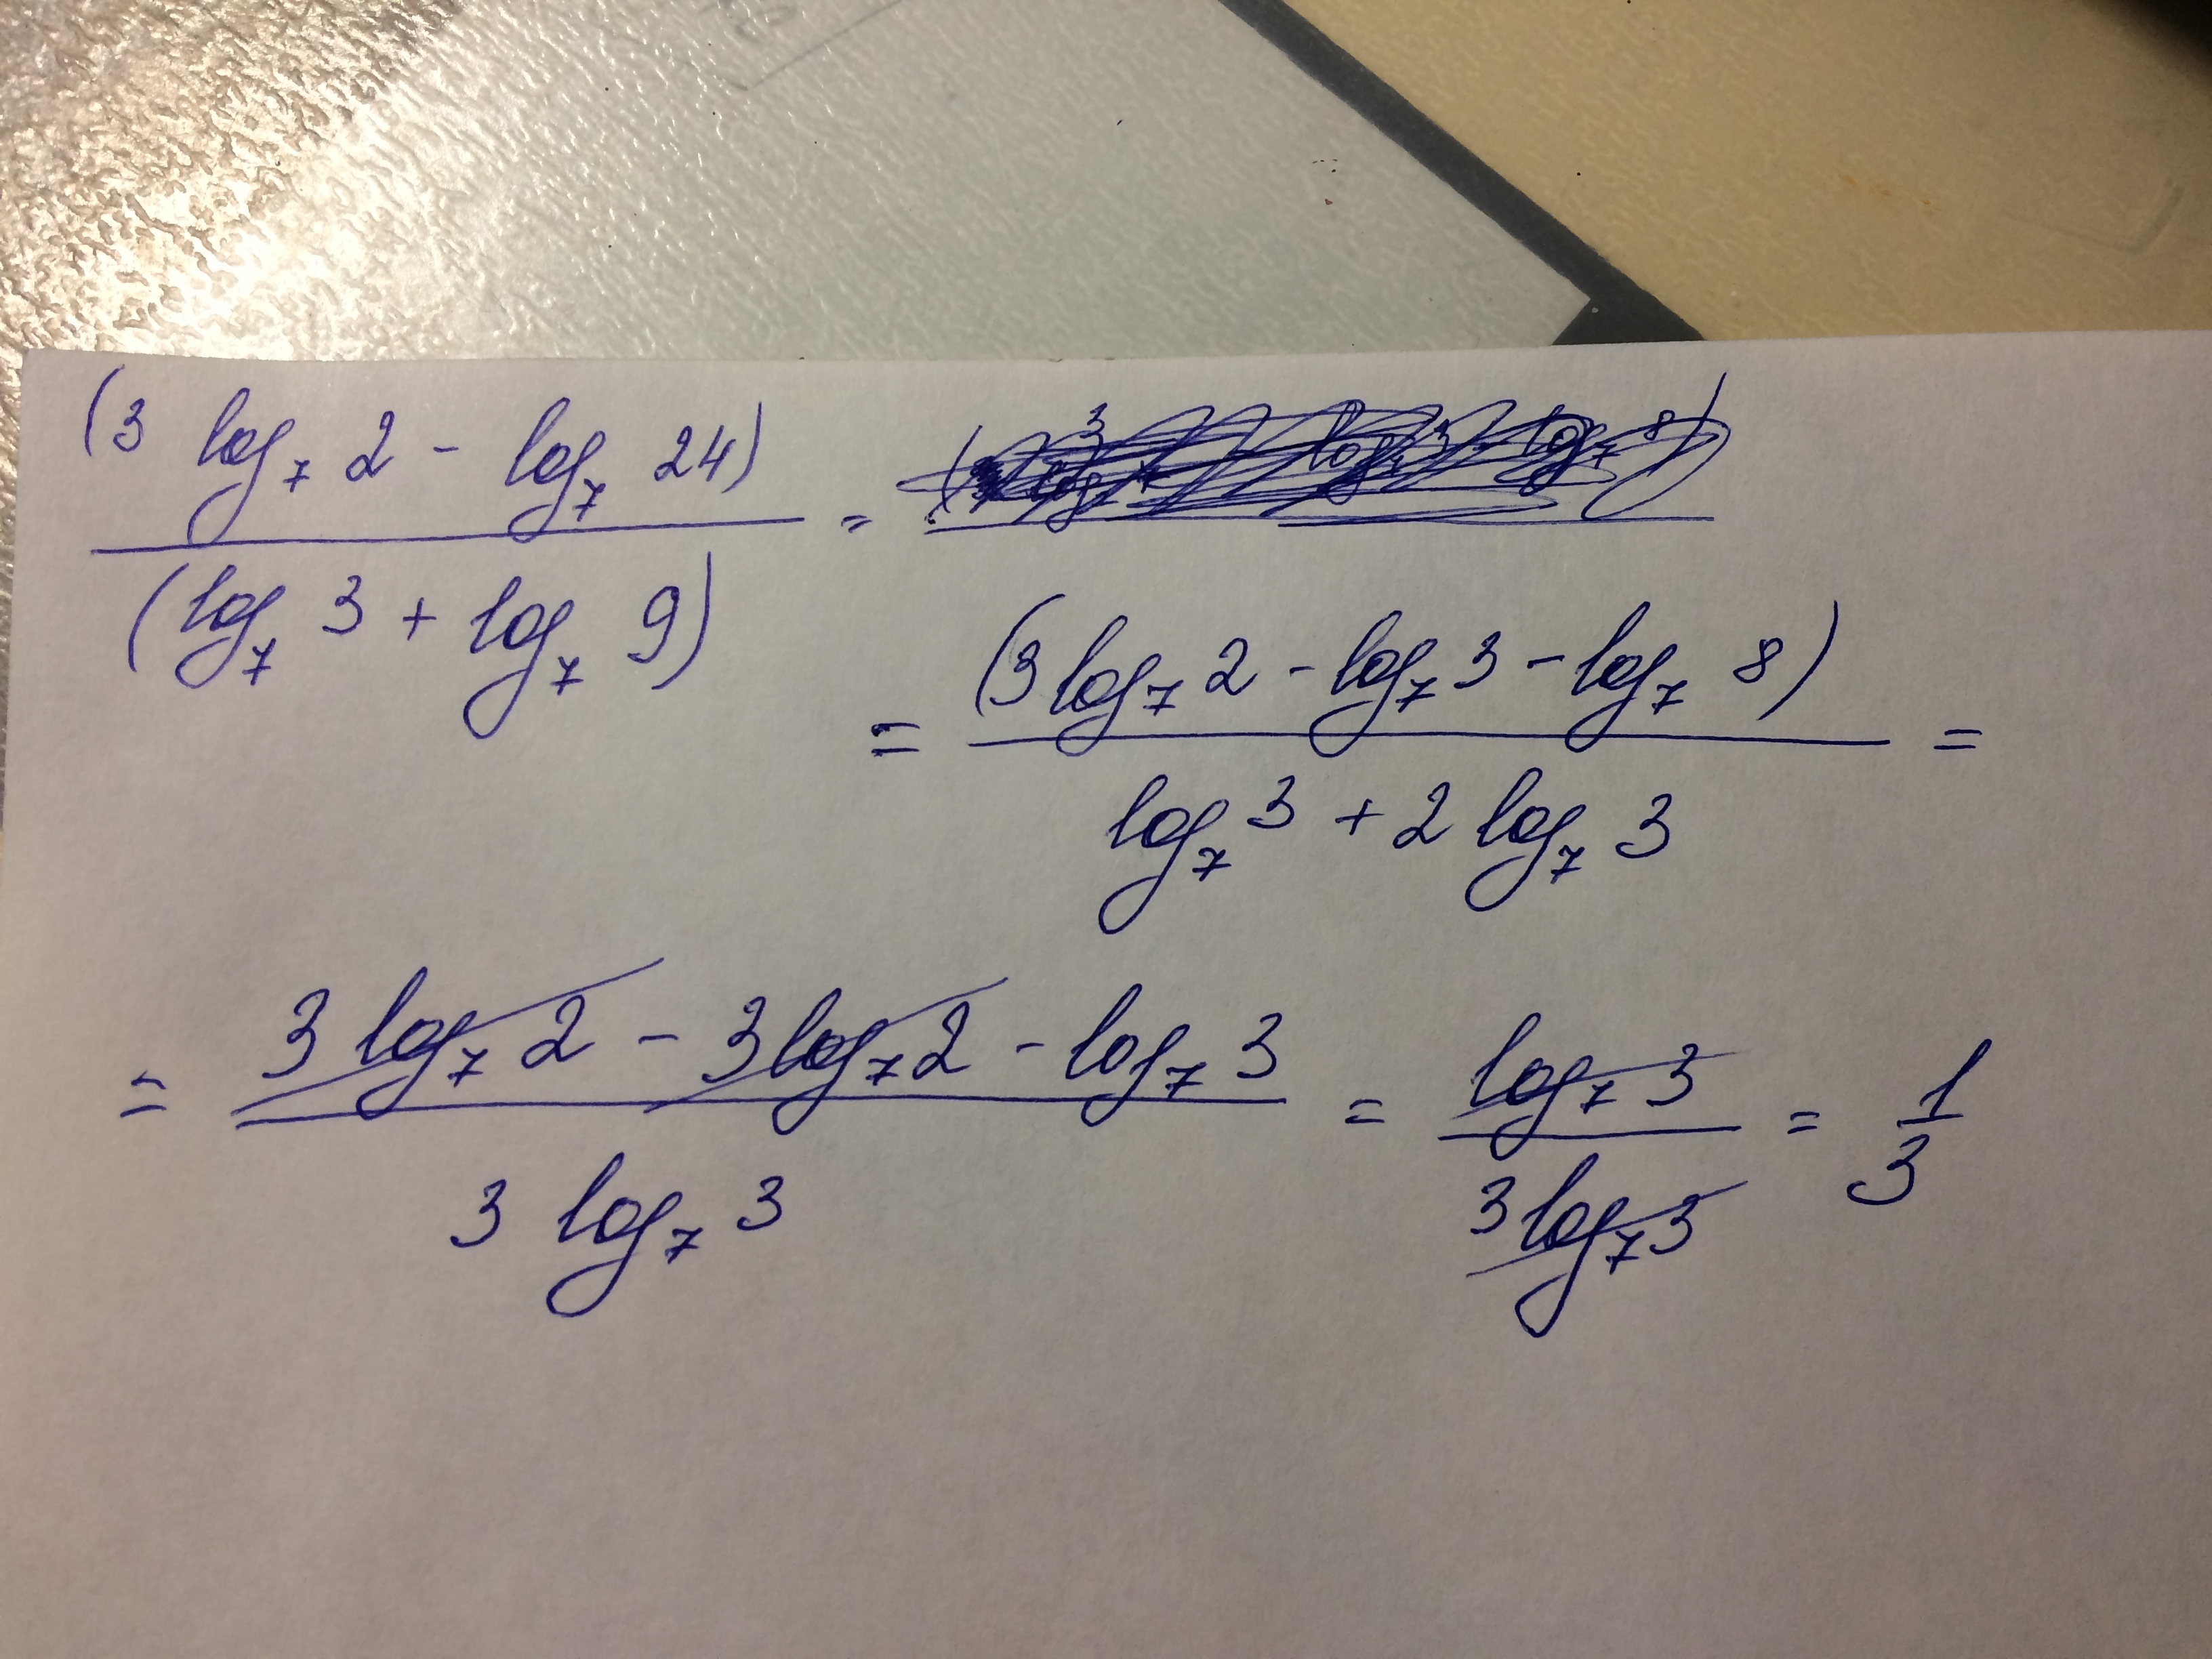 (3 log₇ 2 - log₇ 24) / (log₇ 3 + log₇ 9) =
= (3 log₇ 2 - log₇ 3 - log₇ 8) / log₇ 3 + 2 log₇ 3 =
= 3 log₇ 2 - 3 log₇ 2 - log₇ 3 / 3 log₇ 3 = log₇ 3 / 3 log₇ 3 = 1/3